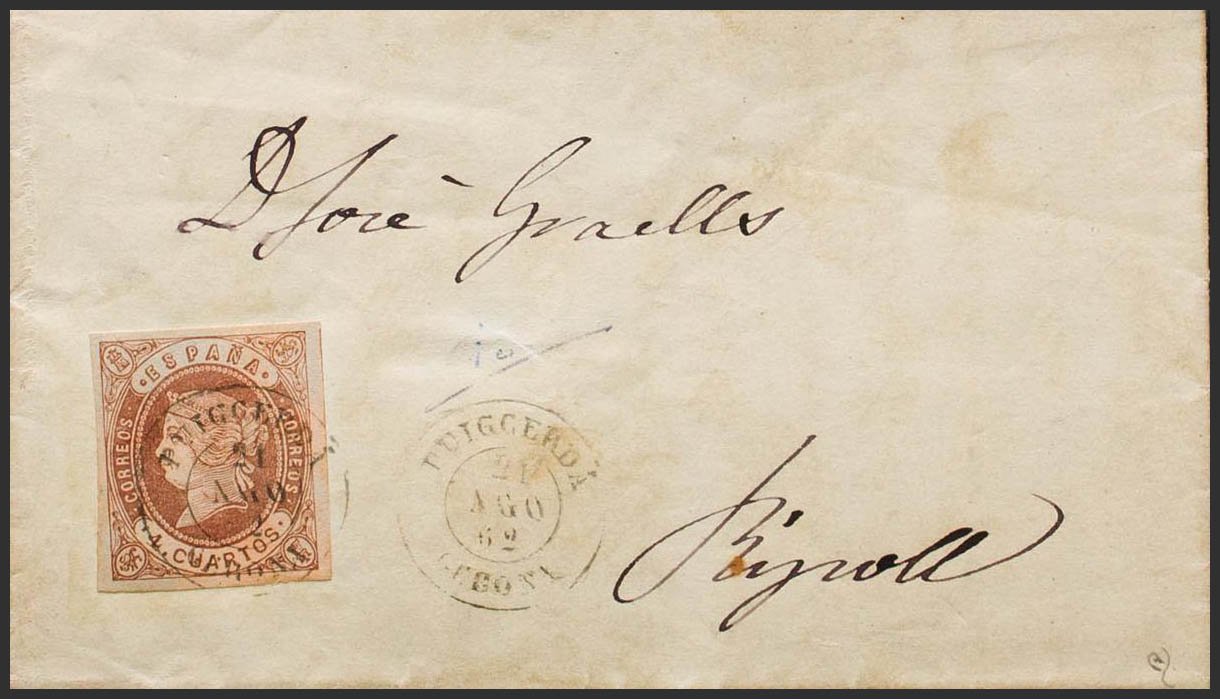 D José Graells
ESPAÑA
CORREOS
CORREOS
4 CUARTOS
PUIGCERDÁ
21
AGO
PUIGCERDÁ
21
AGO
62
GERONA
Ripoll